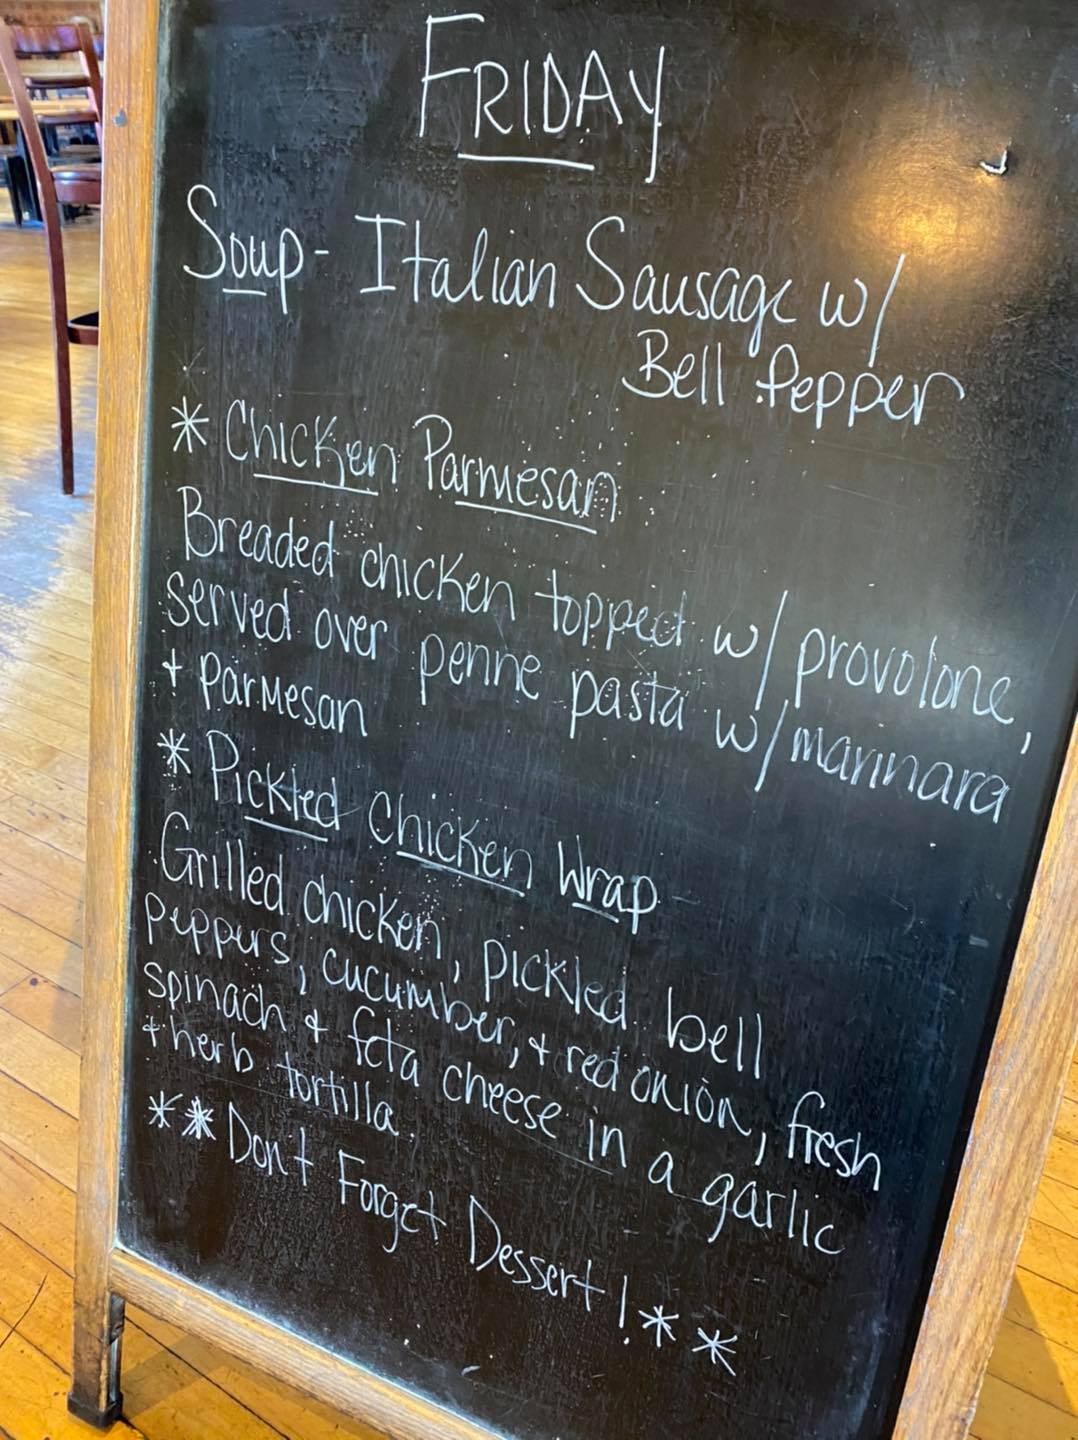 FRIDAY
Soup - Italian Sausage w/
Bell Pepper
* Chicken Parmesan
Breaded chicken topped w/ provolone,
served over penne pasta w/ marinara
+ parmesan
* Pickled Chicken Wrap -
Grilled chicken, pickled bell
peppers, cucumber, + red onion, fresh
spinach + feta cheese in a garlic
+ herb tortilla.
** Don't Forget Dessert! **